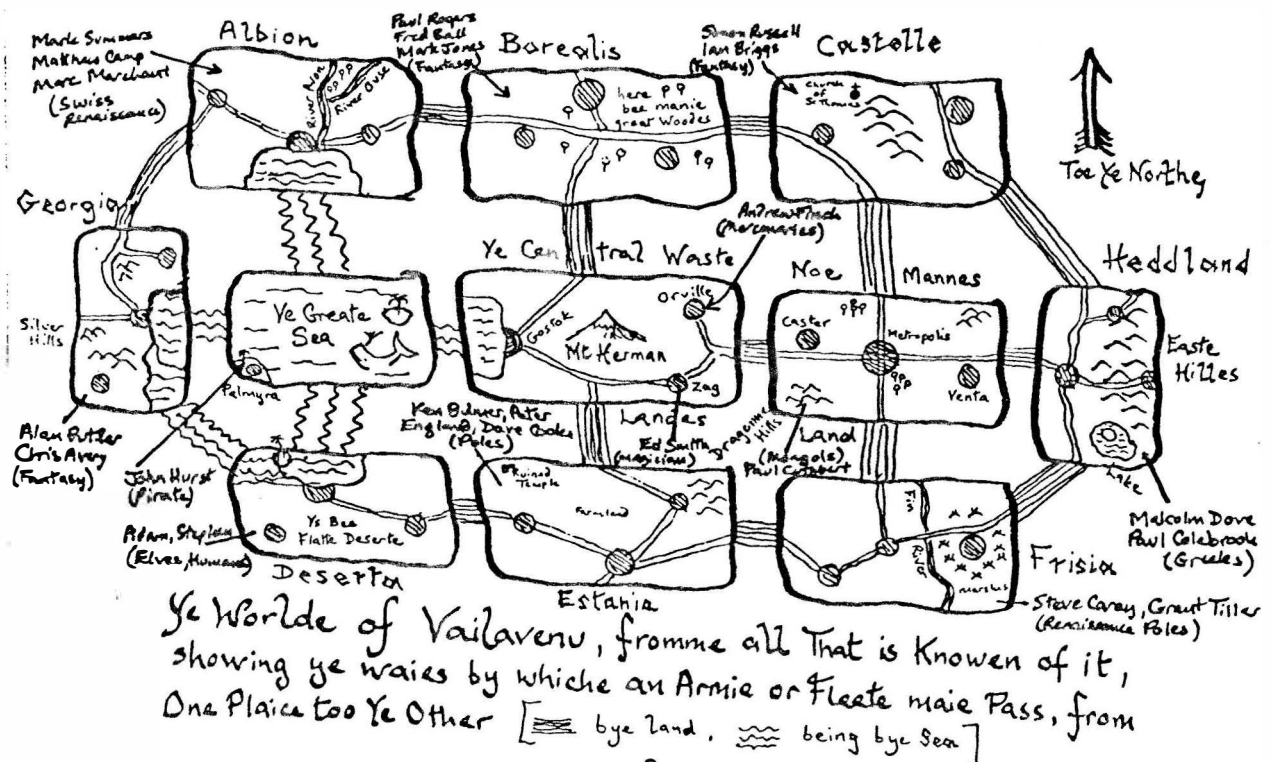 Albion
Mark Summers
Matthew Camp
Marc Marchant
(Swiss
Renaissance)
River Avon
River Ouse
Paul Rogers
Fred Ball
Mark Jones
(Fantasy)
Borealis
here
bee manie
great Woodes
Simon Russell
Ian Briggs
(Fantasy)
Castelle
Church
of
St Thomas
Toe Ye Northe
Georgia
Silver
Hills
Alan Butler
Chris Avery
(Fantasy)
Ye Greate
Sea
Palmyra
John Hurst
(Pirate)
Ye Central Waste
Landes
Andrew
(Mercenaries)
Orville
Gostok
Mt Herman
Zag
Ed Smith
(Magician)
Noe Mannes
Land
Caster
Metropolis
Venta
Dragonne
Hills
(Mongols)
Paul Cuthbert
Heddland
Easte
Hilles
Lake
Malcolm Dove
Paul Colebrook
(Greeks)
Adam, Stephen
(Elves, Humans)
Ys Bee
Flatte Deserte
Deserta
Ken Bulmer, Peter
England, Dave Cooke
(Poles)
Ruined
Temple
Farmland
Estania
Fin
River
Marshes
Frisia
Steve Carey, Grant Tiller
(Renaissance Poles)
Ye Worlde of Vailavenu, fromme all That is Knowen of it,
showing ye waies by whiche an Armie or Fleete maie Pass, from
One Plaice too Ye Other [ bye land, being bye Sea]